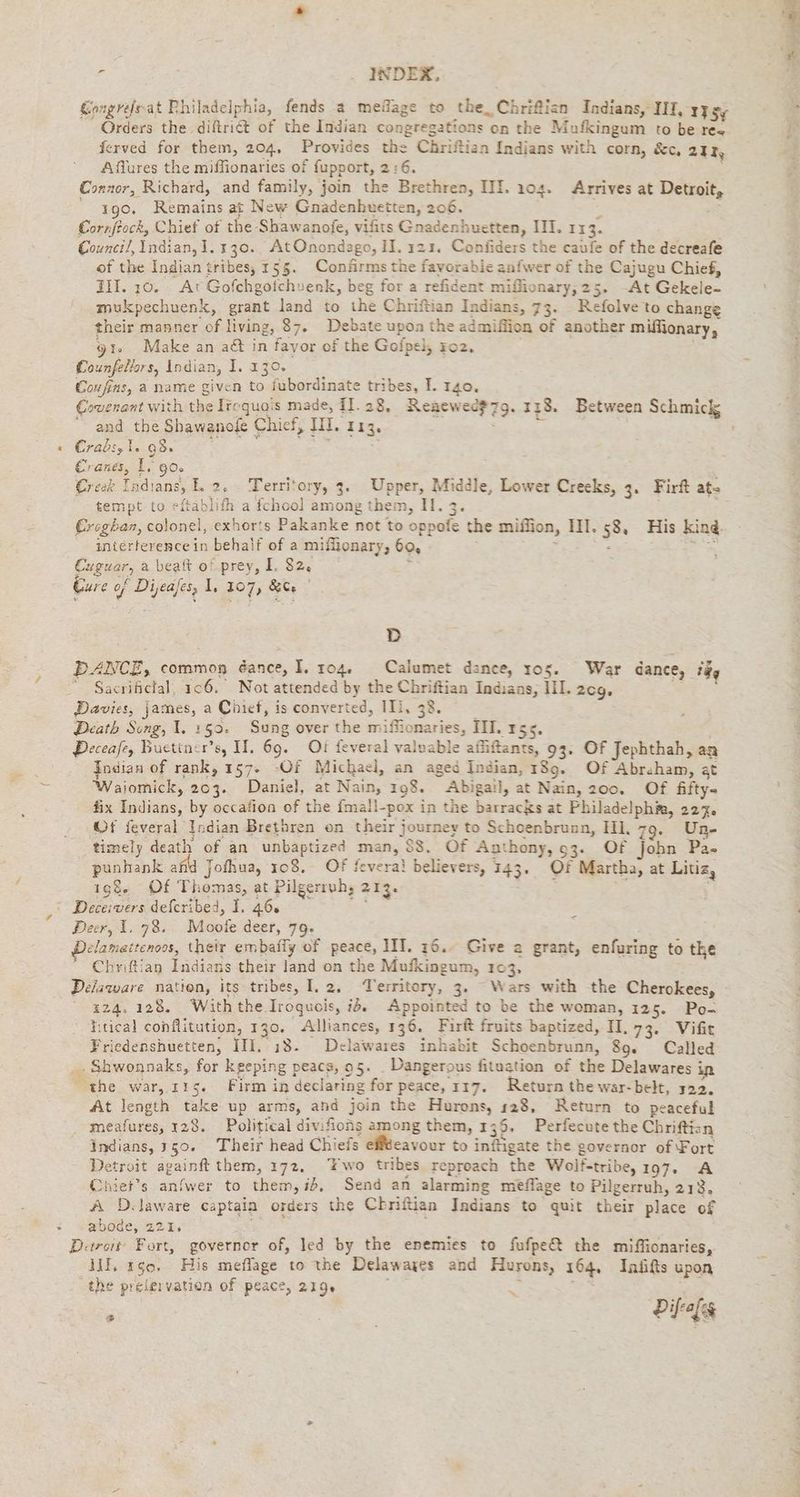 INDEX.
Congreſs at Philadelphia, ſends a meſſage to the Chriſtian Indians, III.
Orders the diſtrict of the Indian congregations on the Muſkingum to be re-
ſerved for them, 204. Provides the Chriſtian Indians with corn, &c. 211,
Aſſures the miſſionaries of ſupport, 216.
Connor, Richard, and family, join the Brethren, III. 104. Arrives at Detroit,
190. Remains at New Gnadenhuetten, 206.
Cornſtock, Chief of the Shawanoſe, viſits Gnadenhuetten, III. 113.
Council, Indian, I. 130. At Onondago, II. 121. Conſiders the cauſe of the decreaſe
of the Indian tribes, 155. Confirms the favorable anſwer of the Cajugu Chief,
III. 10. At Goſchgoſchuenk, beg for a reſident miſſionary, 25. At Gekele-
mukpechuenk, grant land to the Chriſtian Indians, 73. Reſolve to change
their manner of living, 87. Debate upon the admiſſion of another miſſionary,
91. Make an act in favor of the Goſpel, 102.
Counſellors, Indian, I. 130.
Couſins, a name given to ſubordinate tribes, I. 140.
Covenant with the Iroquois made, II. 28. Renewed 79. 118. Between Schmick
and the Shawanoſe Chief, III. 113.
Crabs, I. 98.
Cranes, I. 90.
Creek Indians, I. 2. Territory, 3. Upper, Middle, Lower Creeks, 3. Firſt at-
tempt to eſtabliſh a ſchool among them, II. 3.
Croghan, colonel, exhorts Pakanke not to oppoſe the miſſion, III. 58. His kind
interference in behalf of a miſſionary, 60.
Cuguar, a beaſt of prey, I. 82.
Cure of Diſeaſes, I. 107, &c.
D
DANCE, common dance, I. 104. Calumet dance, 105. War dance,
Sacrificial, 106. Not attended by the Chriſtian Indians, III. 209.
Davies, james, a Chief, is converted, III. 38.
Death Song, I. 150. Sung over the miſſionaries, III. 155.
Deceaſe, Buettner's, II. 69. Of ſeveral valuable aſſiſtants, 93. Of Jephthah, an
Indian of rank, 157. Of Michael, an aged Indian, 189. Of Abraham, at
Waiomick, 203. Daniel, at Nain, 198. Abigail, at Nain, 200. Of fifty-
ſix Indians, by occaſion of the ſmall-pox in the barracks at Philadelphia, 227.
Of ſeveral Indian Brethren on their journey to Schoenbrunn, III. 79. Un-
timely death of an unbaptized man, 88. Of Anthony, 93. Of John Pa-
punhank and Joſhua, 108. Of ſeveral believers, 143. Of Martha, at Litiz,
198. Of Thomas, at Pilgerruh, 213.
Deceivers deſcribed, I. 46.
Deer, I. 78. Mooſe deer, 79.
Delamattenoos, their embaſſy of peace, III. 16. Give a grant, enſuring to the
Chriſtian Indians their land on the Muſkingum, 103.
Delaware nation, its tribes, I. 2. Territory, 3. Wars with the Cherokees,
124. 128. With the Iroquois, ib. Appointed to be the woman, 125. Po-
litical conſtitution, 130. Alliances, 136. Firſt fruits baptized, II. 73. Viſit
Friedenshuetten, III. 18. Delawares inhabit Schoenbrunn, 89. Called
Shwonnaks, for keeping peace, 95. Dangerous ſituation of the Delawares in
the war, 115. Firm in declaring for peace, 117. Return the war-belt, 122.
At length take up arms, and join the Hurons, 128. Return to peaceful
meaſures, 128. Political diviſions among them, 135. Perſecute the Chriſtian
Indians, 150. Their head Chiefs endeavour to inſtigate the governor of Fort
Detroit againſt them, 172. Two tribes reproach the Wolf-tribe, 197. A
Chief's anſwer to them, ib. Send an alarming meſſage to Pilgerruh, 218.
A Delaware captain orders the Chriſtian Indians to quit their place of
abode, 221.
Detroit Fort, governor of, led by the enemies to ſuſpect the miſſionaries,
III. 150. His meſſage to the Delawares and Hurons, 164. Inſiſts upon
the preſervation of peace, 219.
Diſeaſes